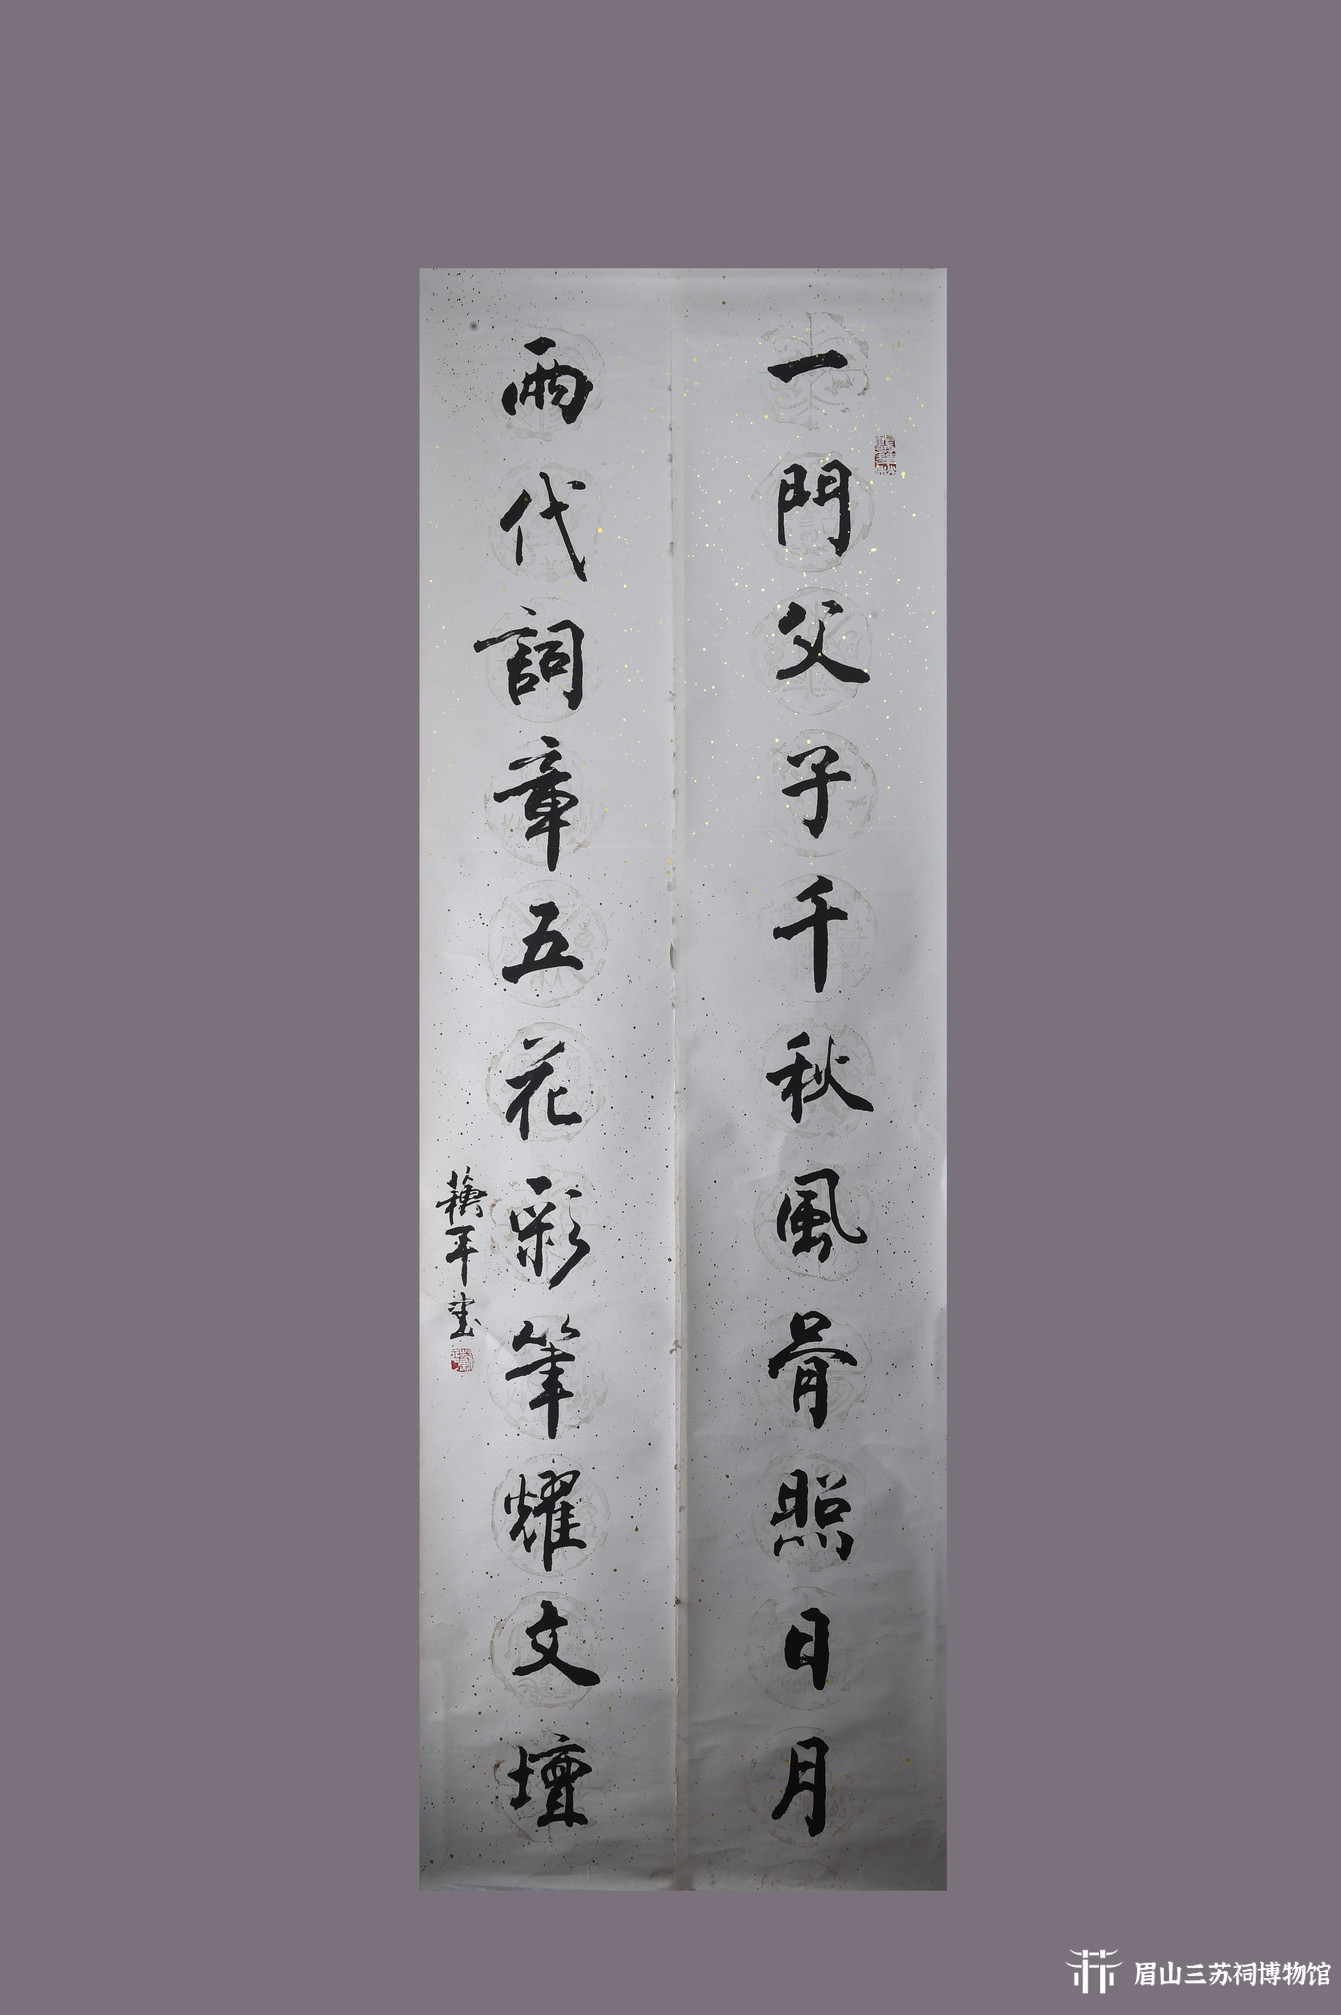 一門父子千秋風骨照日月
兩代詞章五花彩筆耀文壇
平書
眉山三苏祠博物馆